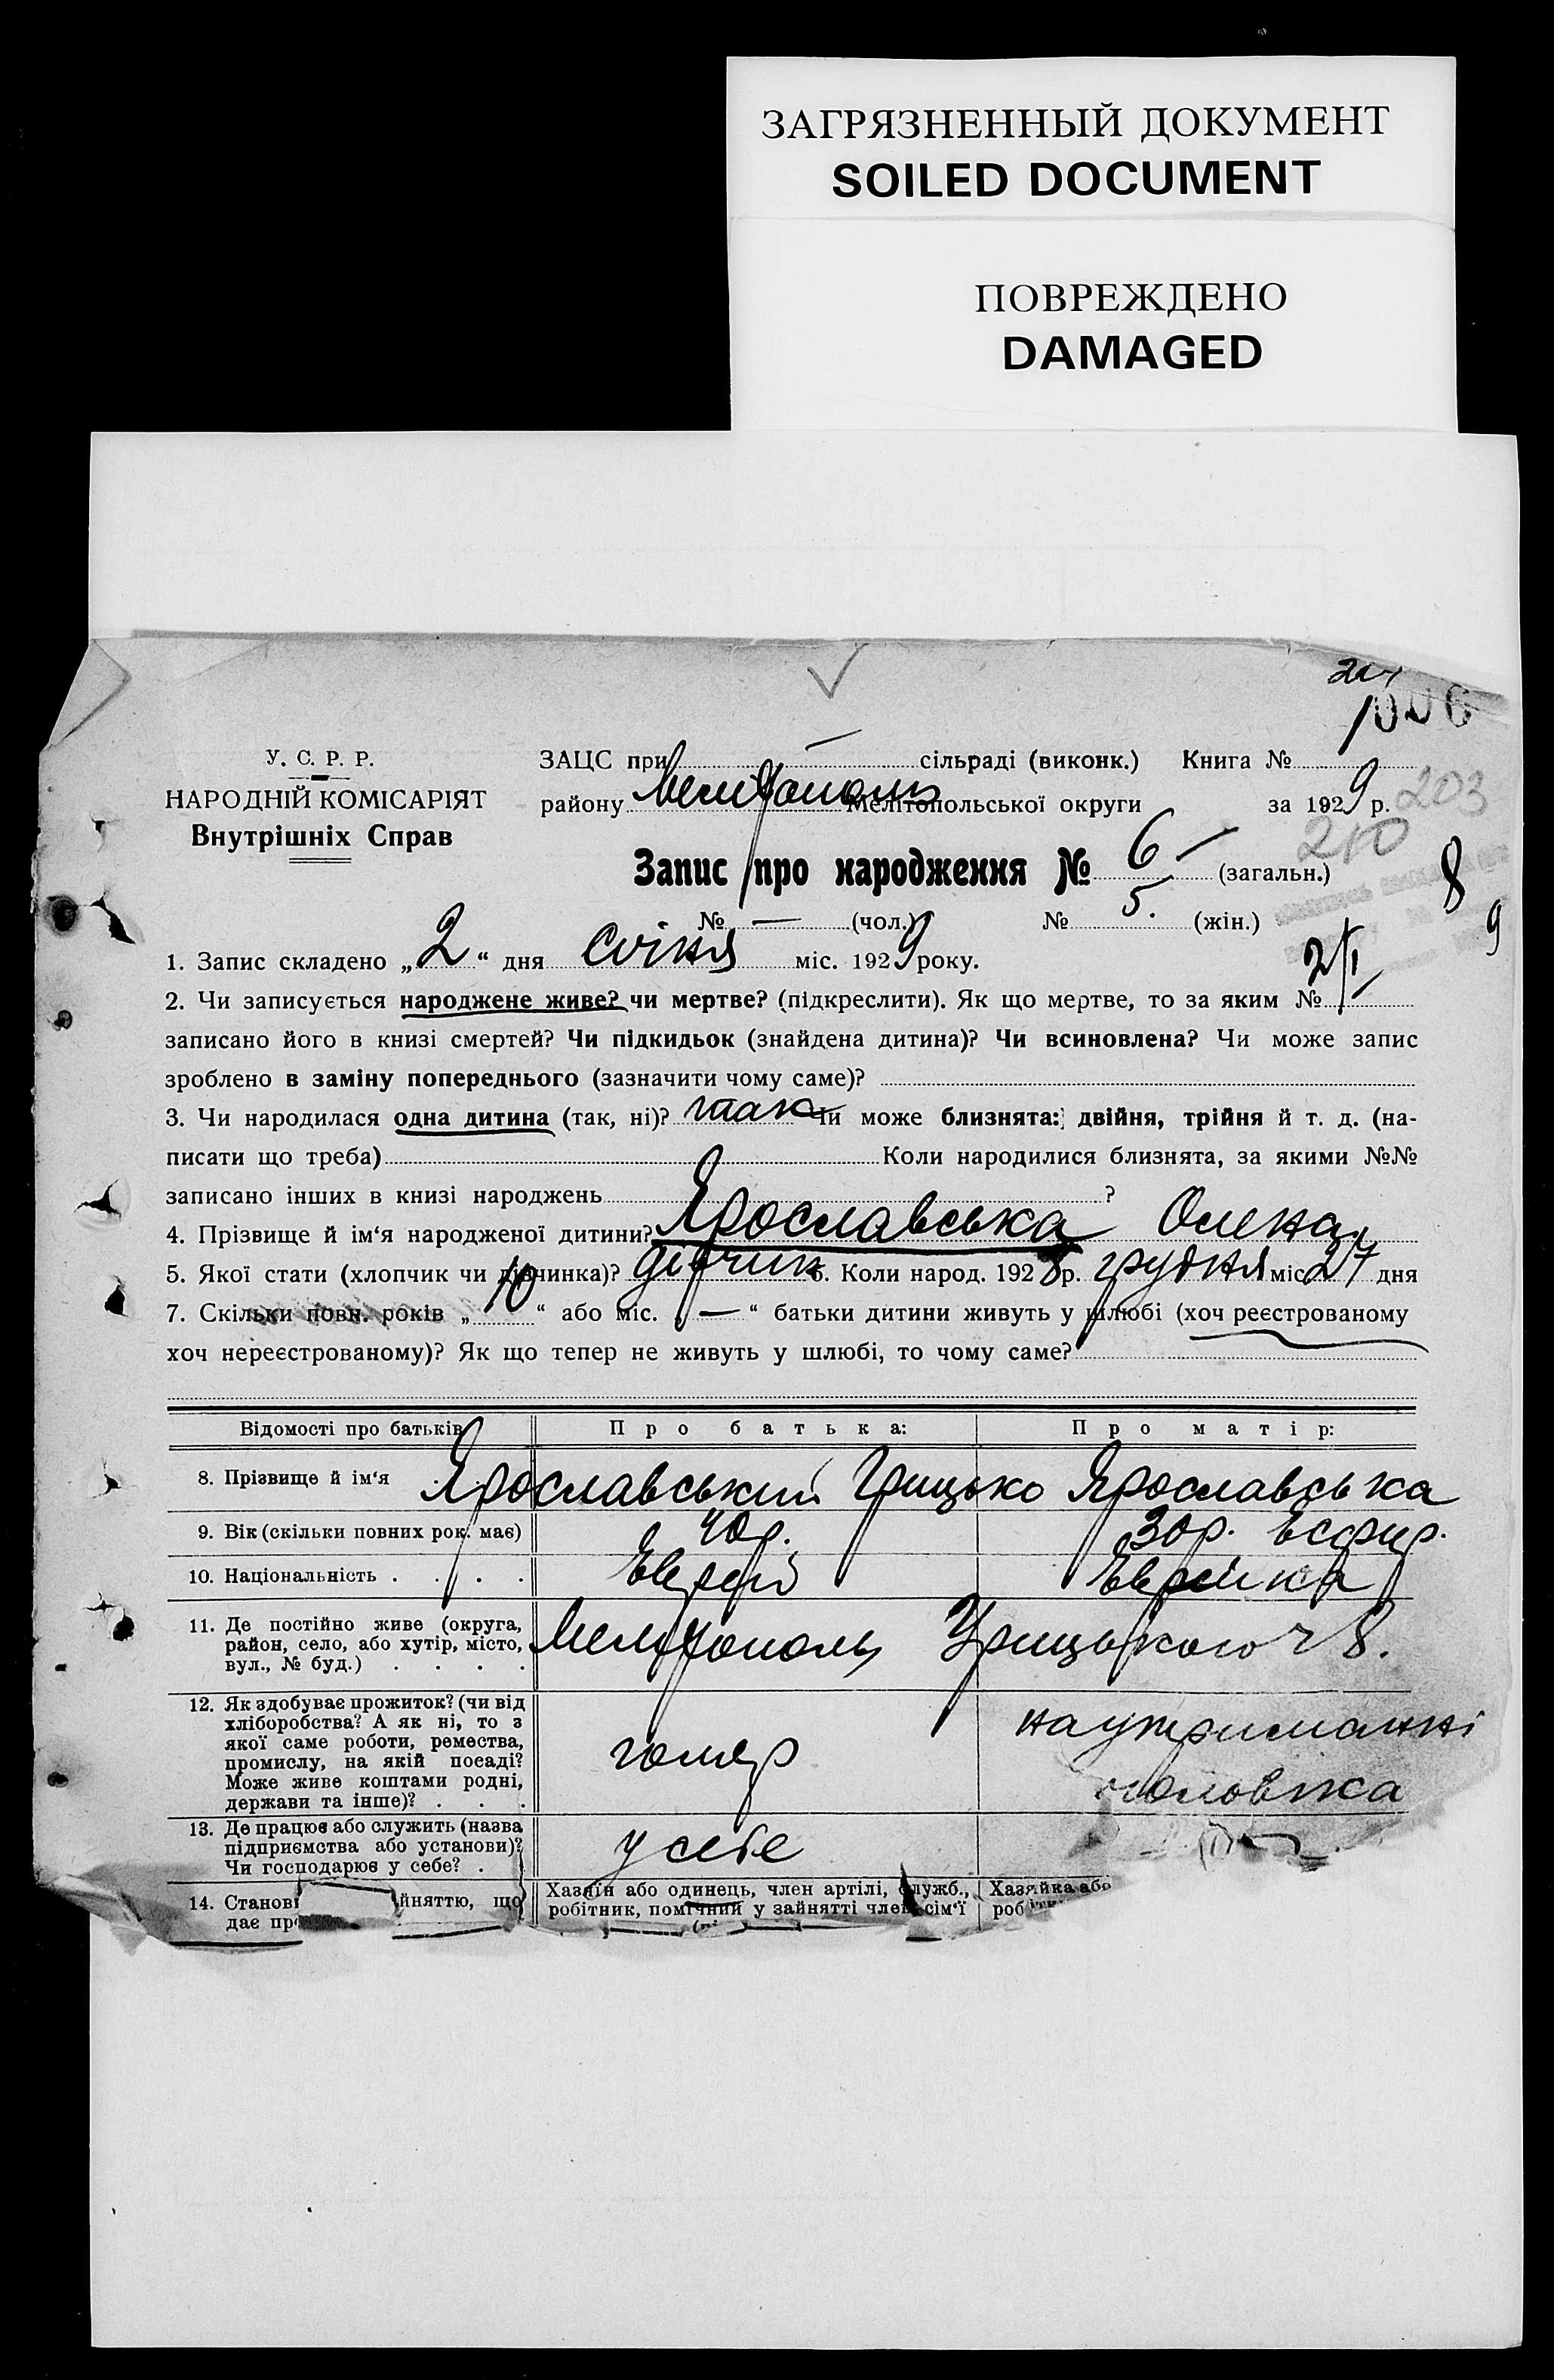 ЗАГРЯЗНЕННЫЙ ДОКУМЕНТ
SOILED DOCUMENT
ПОВРЕЖДЕНО
DAMAGED
У. С. Р. Р.
НАРОДНІЙ КОМІСАРІЯТ
Внутрішніх Справ
ЗАЦС при — сільраді (виконк.) Книга №
району Мелітополь Мелітопольської округи за 1929 р. 203
210
Запис про народження № 6 — (загальн.) 8
№ — (чол.) № 5. (жін.) 9
1. Запис складено „2“ дня Січня міс. 1929 року. 2/I
2. Чи записується народжене живе? чи мертве? (підкреслити). Як що мертве, то за яким №
записано його в книзі смертей? Чи підкидьок (знайдена дитина)? Чи всиновлена? Чи може запис
зроблено в заміну попереднього (зазначити чому саме)?
3. Чи народилася одна дитина (так, ні)? так Чи може близнята: двійня, трійня й т. д. (на-
писати що треба) Коли народилися близнята, за якими №№
записано інших в книзі народжень ?
4. Прізвище й ім‘я народженої дитини? Ярославська Олена
5. Якої стати (хлопчик чи дівчинка)? 6. Коли народ. 1928 р. грудня міс. 27 дня
7. Скільки повн. років „10“ або міс. „—“ батьки дитини живуть у шлюбі (хоч реєстрованому
хоч нереєстрованому)? Як що тепер не живуть у шлюбі, то чому саме?
Відомості про батьків Про батька: Про матір:
8. Прізвище й ім‘я Ярославський Грицько Ярославська
9. Вік (скільки повних рок. має) 40р. 30р. Есфир.
10. Національність . . . . Еврей Еврейка
11. Де постійно живе (округа,
район, село, або хутір, місто,
вул., № буд.) . . . . Мелітополь Урицького ч 8.
12. Як здобуває прожиток? (чи від
хліборобства? А як ні, то з
якої саме роботи, ремества,
промислу, на якій посаді?
Може живе коштами родні,
держави та інше)? . . .
на утриманні
чоловіка
13. Де працює або служить (назва
підприємства або установи)?
Чи господарює у себе? . у себе
14. Станові йняттю, що
дає пр
Хазяїн або одинець, член артілі, служб.,
робітник, помічний у зайнятті член сім‘ї
Хазяйка або
робітн